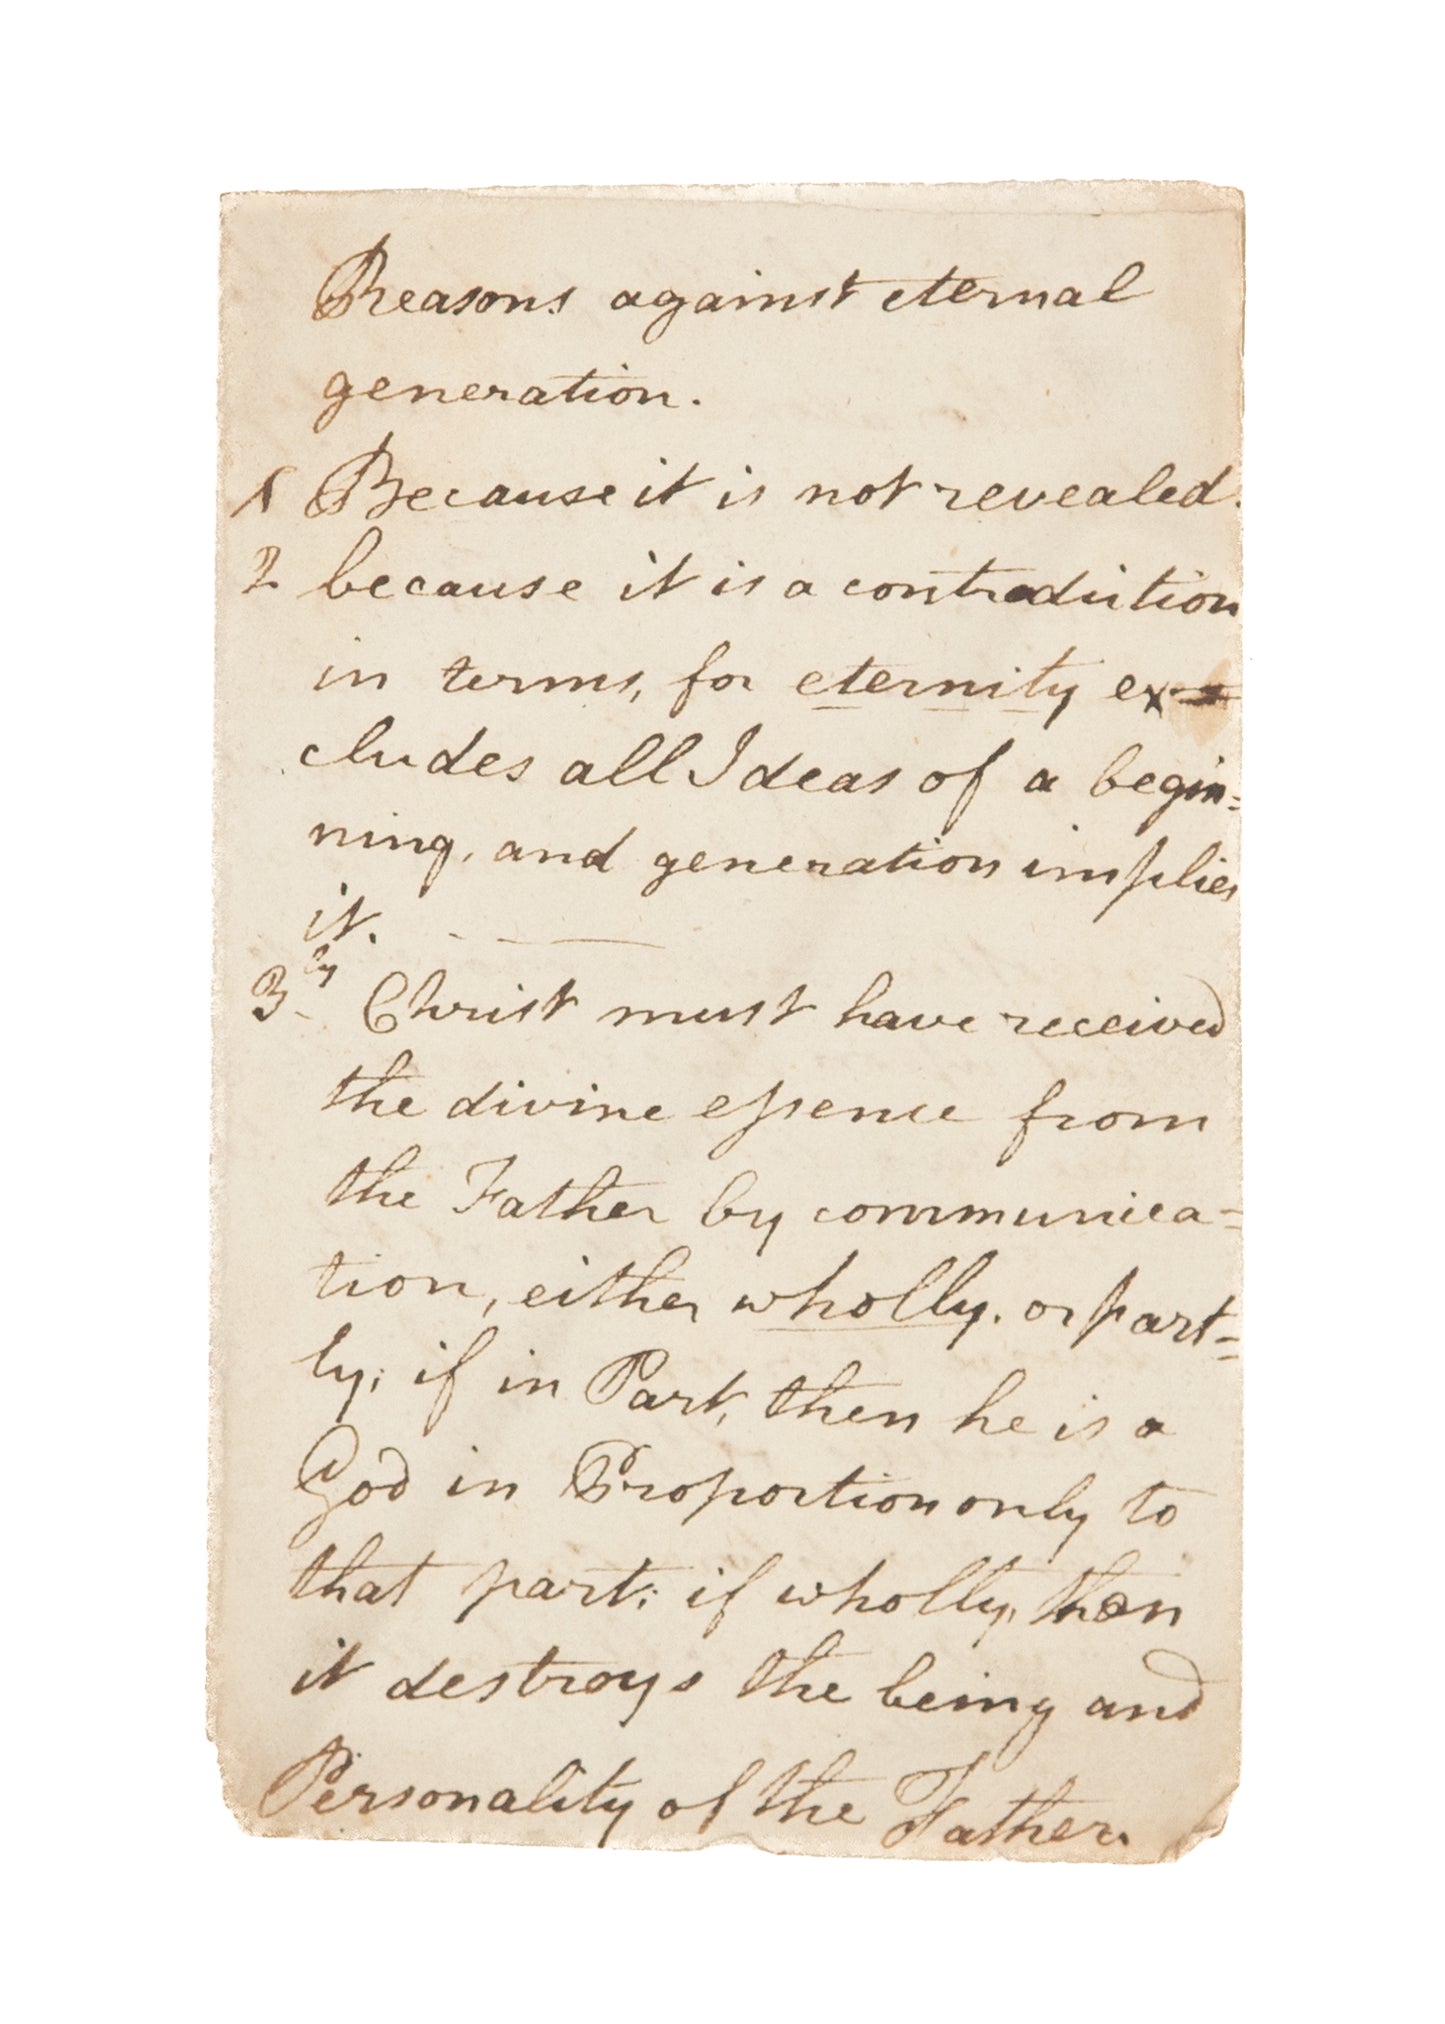 Reasons against eternal
generation.
1 Because it is not revealed.
2 because it is a contradiction
in terms, for eternity ex-
cludes all Ideas of a begin=
ning, and generation implies
it.
3ly Christ must have received
the divine eſsence from
the Father by communica=
tion, either wholly. or part=
ly; if in Part, then he is a
God in Proportion only to
that part; if wholly, then
it destroys the being and
Personality of the Father.